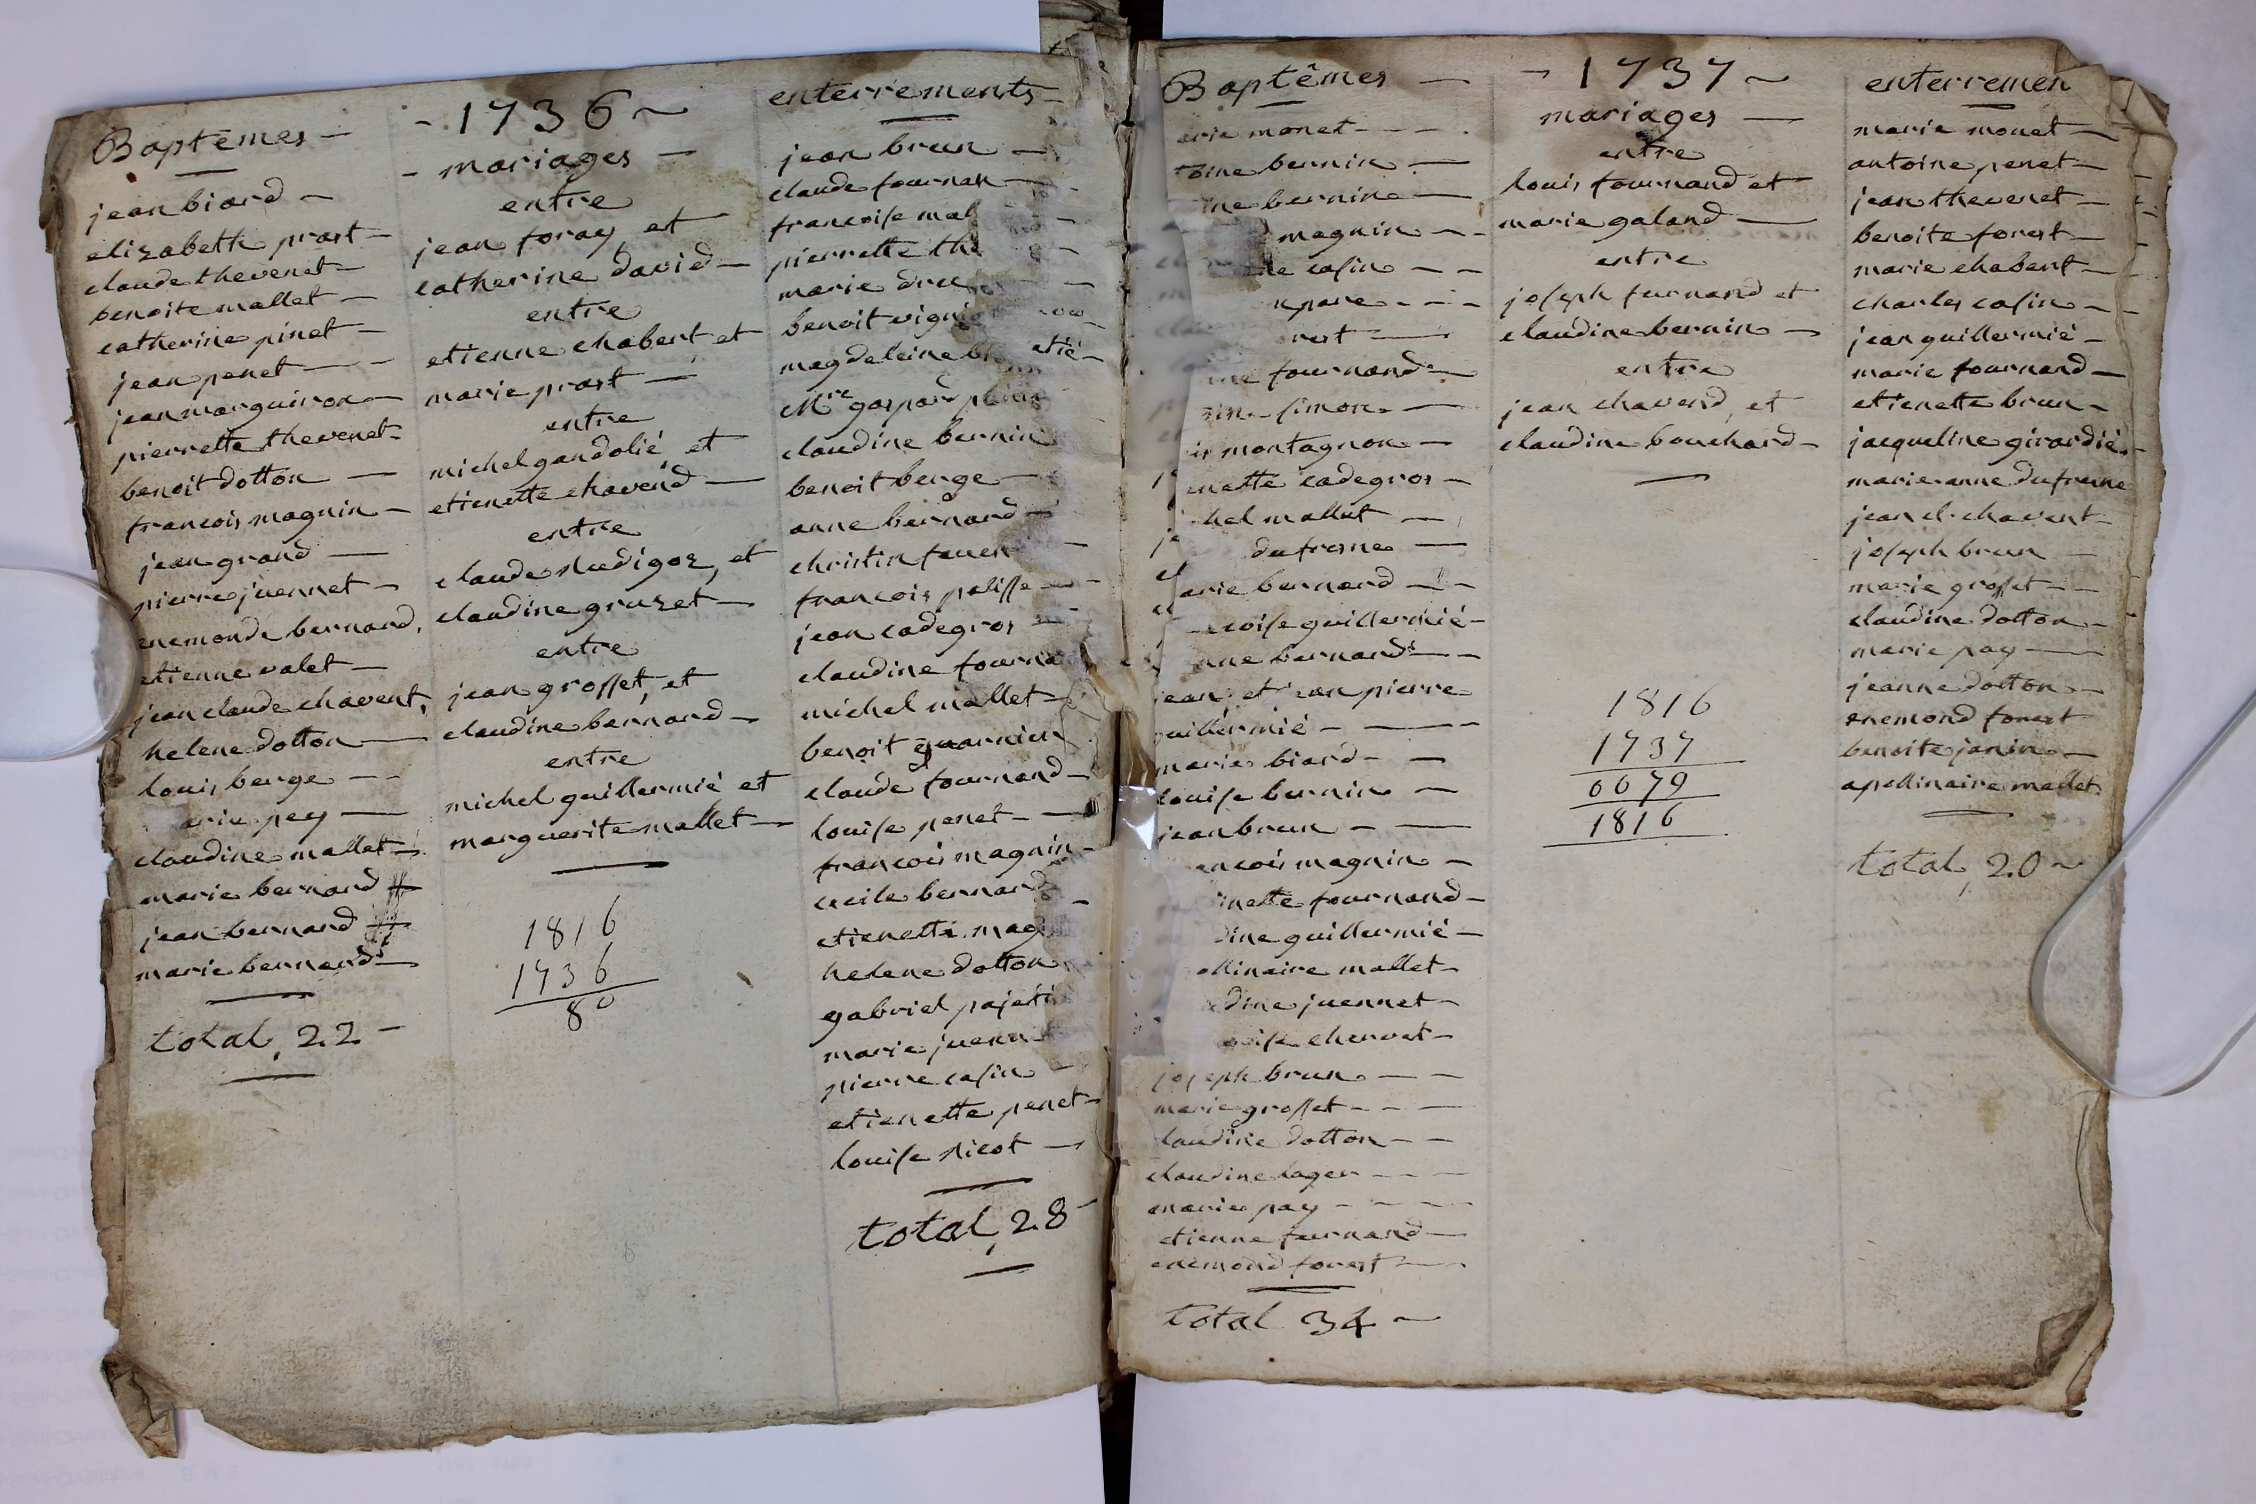 Baptêmes
jean biard
elizabeth prost
claude thevenet
benoite mallet
catherine pinet
jean penet
jean marguiron
pierrette thevenet
benoit dotton
francois magnin
jean grand
pierre juennet
enemonde bernard
etienne valet
jean claude chavent
helene dotton
louis berge
arie pey
claudine mallet
marie bernard
jean bernard
marie bernard
total, 22
1736
mariages
entre
jean foray et
catherine david
entre
etienne chabert et
marie prost
entre
michel gandolié et
etienette chavend
entre
claude et
claudine gruzet
entre
jean grosset, et
claudine bernard
entre
michel guillermié et
marguerite mallet
1816
1736
80
enterrements
jean brun
claude fournan
francoise mal
pierrette the
marie dru
benoit vigni
magdeleine
Mre gaspard
claudine bernin
benoit berge
anne bernard
christin
francois palisse
jean cadegros
claudine fourna
michel mallet
benoit guarnier
claude fournand
louise penet
francois magnin
cecile bernard
etienette mag
helene dotton
gabriel
marie juenn
pierre casin
etienette penet
louise nicot
total, 28
Baptêmes
arie monet
toine bernin
ine bernine
magnin
ne casin
pare
rest
fournand
simon
montagnon
enette cadegros
hel mallet
dufresne
arie bernard
coise guillermié
nne bernard
jean, et jean pierre
guillermié
marie biard
louise bernin
jean brun
ancois magnin
inette fournand
dine guillermié
llinaire mallet
dine juennet
oise chervet
joseph brun
marie grosset
laudine dotton
claudine lager
marie pay
etienne furnand
enemond forest
total 34
1737
mariages
entre
louis fournand et
marie galand
entre
joseph furnand et
claudine bernin
entre
jean chavend, et
claudine bouchard
1816
1737
0079
1816
enterremen
marie monet
antoine penet
jean thevenet
benoite forest
marie chabert
charles casin
jean guillermié
marie fournand
etienette brun
jacqueline girardié
marie anne dufresne
jean cl. chavent
joseph brun
marie grosset
claudine dotton
marie pay
jeanne dotton
enemond forest
benoite janin
apollinaire mallet
total, 20